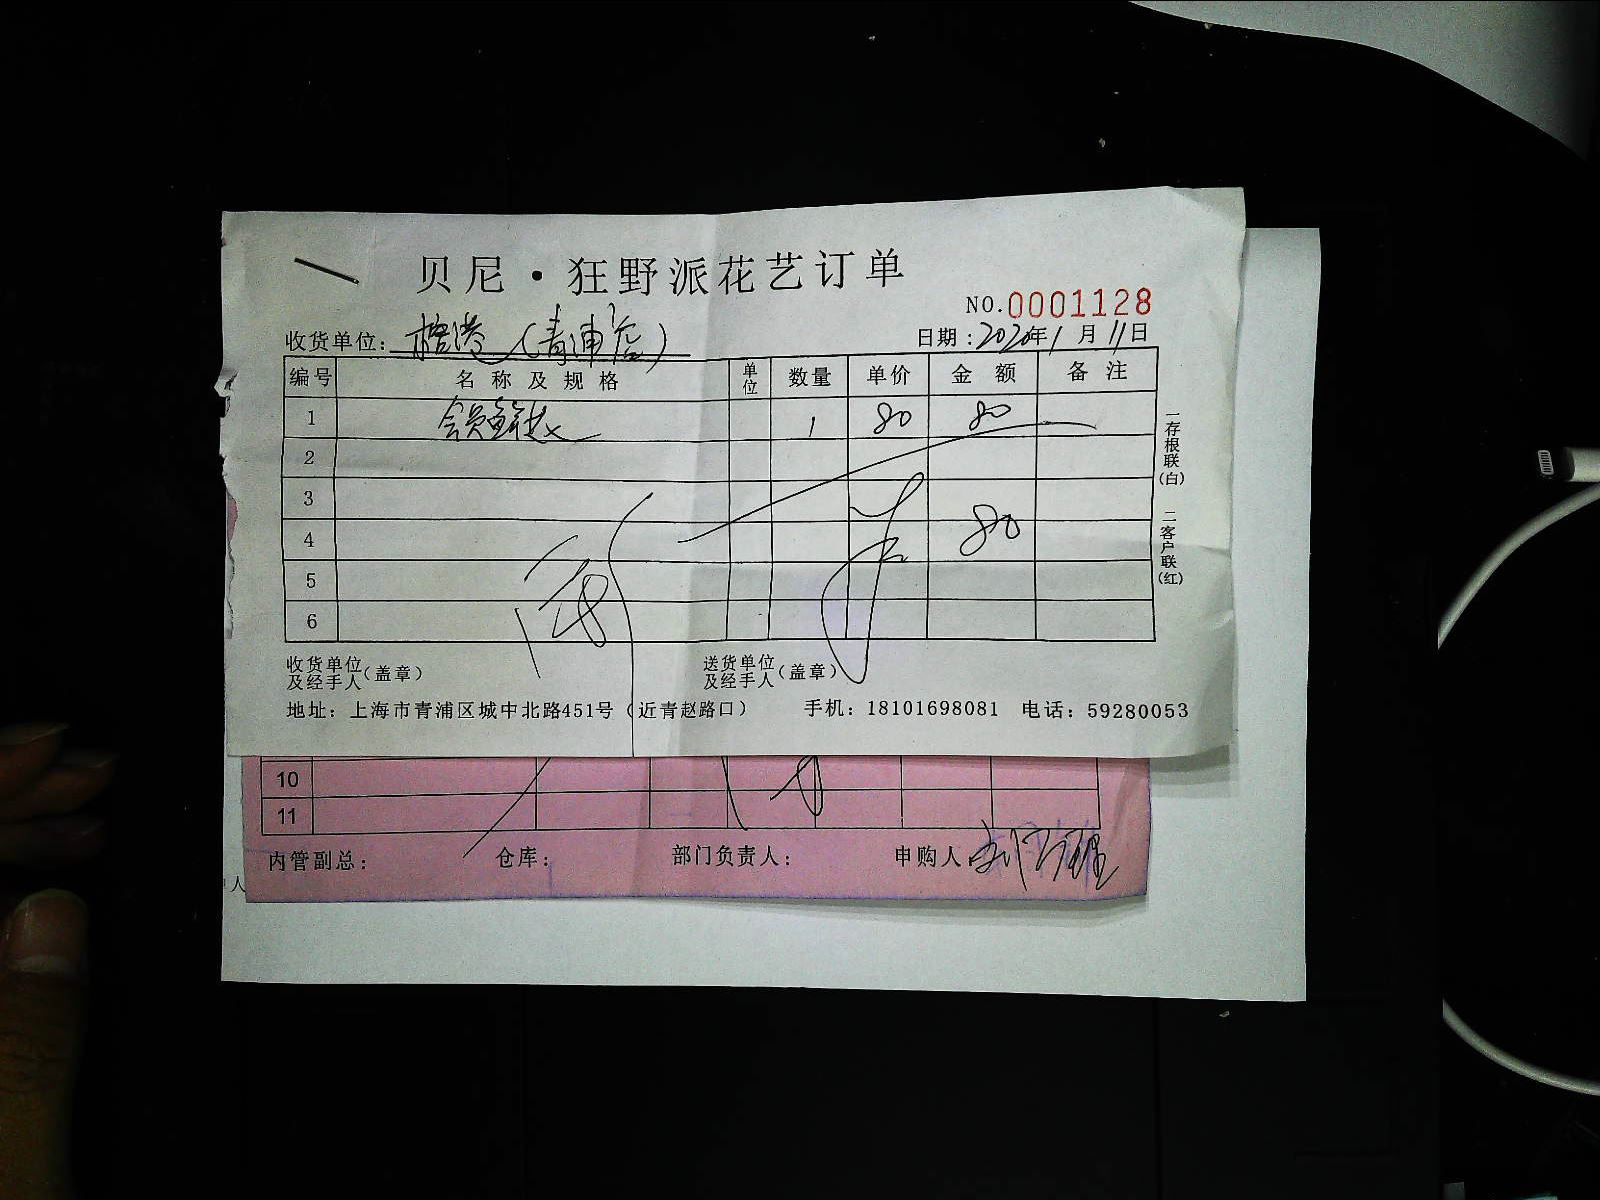 贝尼·狂野派花艺订单
NO.0001128
收货单位: (青浦店)
日期:2020年1月11日
编号 名称及规格 单位 数量 单价 金额 备注
1 会员鲜花 1 80 80
2
3
4 80
5
6
一存根联(白) 二客户联(红)
收货单位及经手人(盖章) 送货单位及经手人(盖章)
地址:上海市青浦区城中北路451号(近青赵路口) 手机:18101698081 电话:59280053
10
11
内管副总: 仓库: 部门负责人: 申购人
人